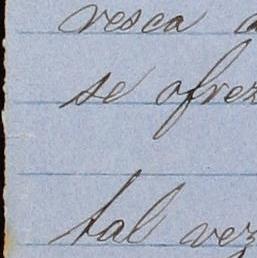 resca a
se ofrez
tal vez